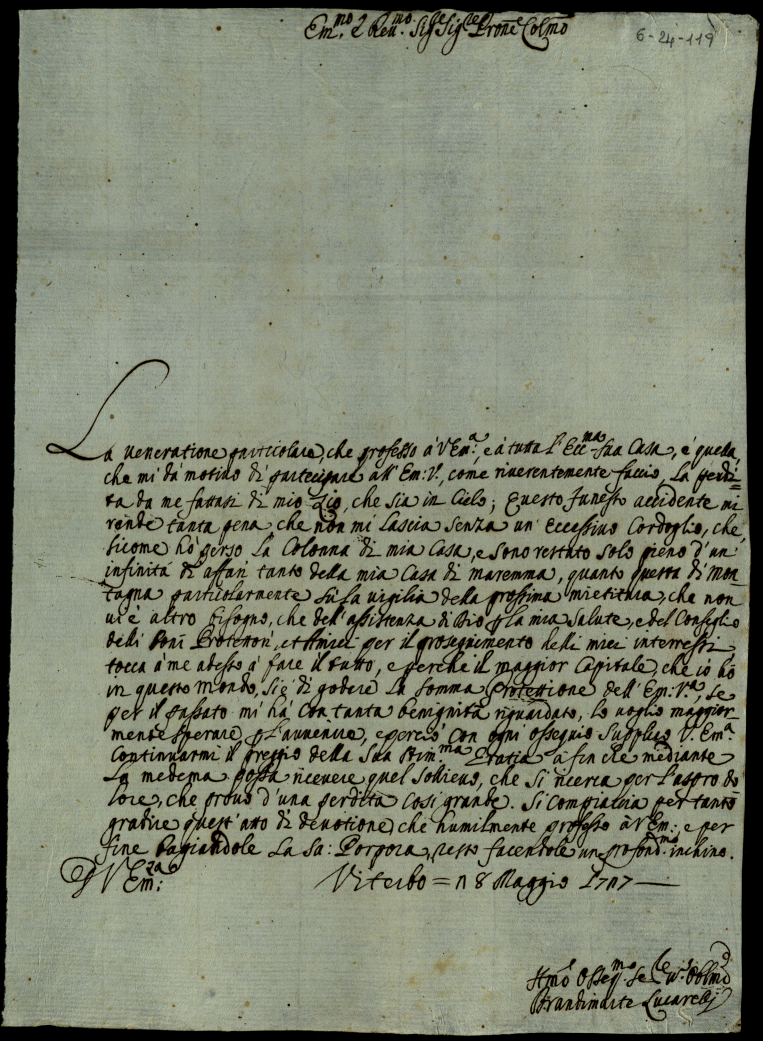 Em.mo e Reu.mo Sig.re Sig.re Prone Colmo
6-24-119
La ueneratione particolare, che professo à V Em.a, e à tutta l'Ecc.ma Sua Casa, è quella,
che mi dà motiuo di partecipare all'Em: V.a, come riuerentemente faccio, La perdi=
ta da me fattasi di mio Zio, che sia in Cielo; Questo funesto accidente mi
rende tanta pena che non mi Lascia Senza un Eccessiuo Cordoglio, che,
sicome hò perso La Colonna di mia Casa, e sono restato solo pieno d'un
infinità di affari tanto della mia Casa di maremma, quanto questa di Mon
tagna particolarmente sù La uigilia della prossima mietitura, che non
ui è altro bisogno, che dell'assistenza di Dio p La mia Salute, e del Conseglio
delli Boni Protettori, et Amici per il proseguimento delli miei interressi
tocca à me adesso à fare il tutto, e perche il maggior Capitale, che io hò
in questo mondo, si è di godere La somma Protettione dell'Em: V.a, se
per il passato mi hà con tanta benignità riguardato, Lo uoglio maggior=
mente sperare p L'auuenire, e perciò Con ogni ossequio Supplico V. Em.a
Continuarmi il preggio della Sua Stim.ma Gratia à fin che mediante
La medema possa riceuere quel solieuo, che si ricerca per L'aspro do
lore, che prouo d'una perdita Così grande. Si Compiaccia per tanto
gradire quest'atto di deuotione, che humilmente professo à V Em:, e per
fine Bagiandole La Sa: Porpora, resto facendole un profond.mo inchino.
D V Em:za Viterbo = 8 Maggio 1707
Hmo Osseq.mo Se.re Oblmo
Brandimarte Lucarelli